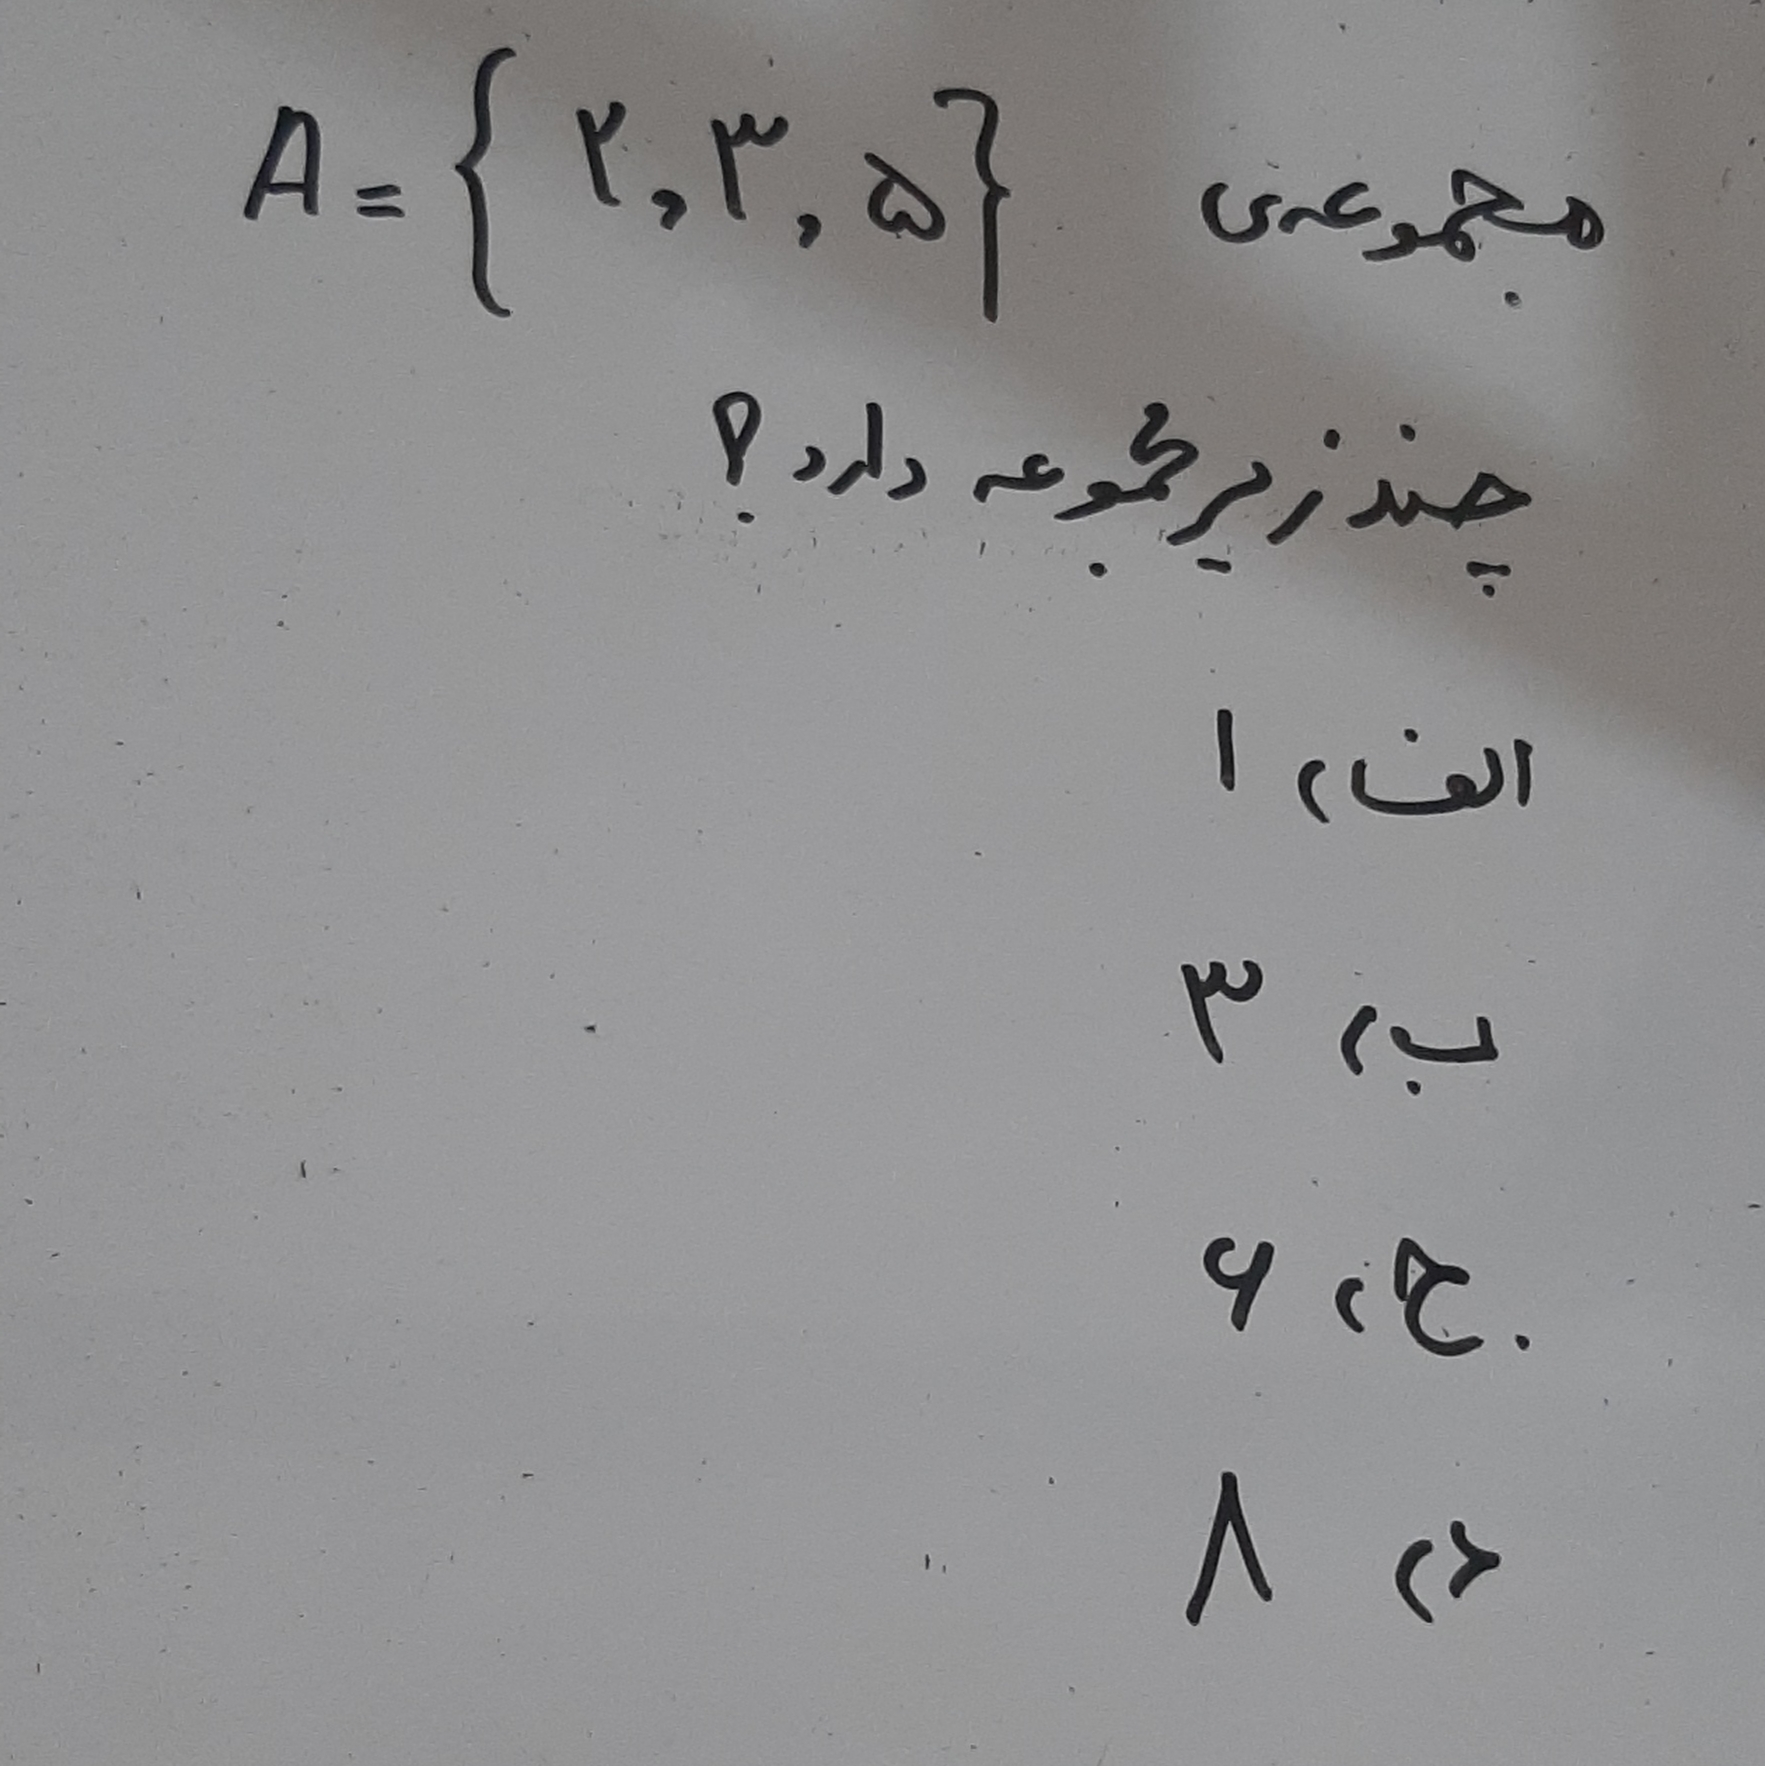 مجموعه‌ی A = { ۲ , ۳ , ۵ }
چند زیرمجموعه دارد ؟
الف) ۱
ب) ۳
ج) ۶
د) ۸